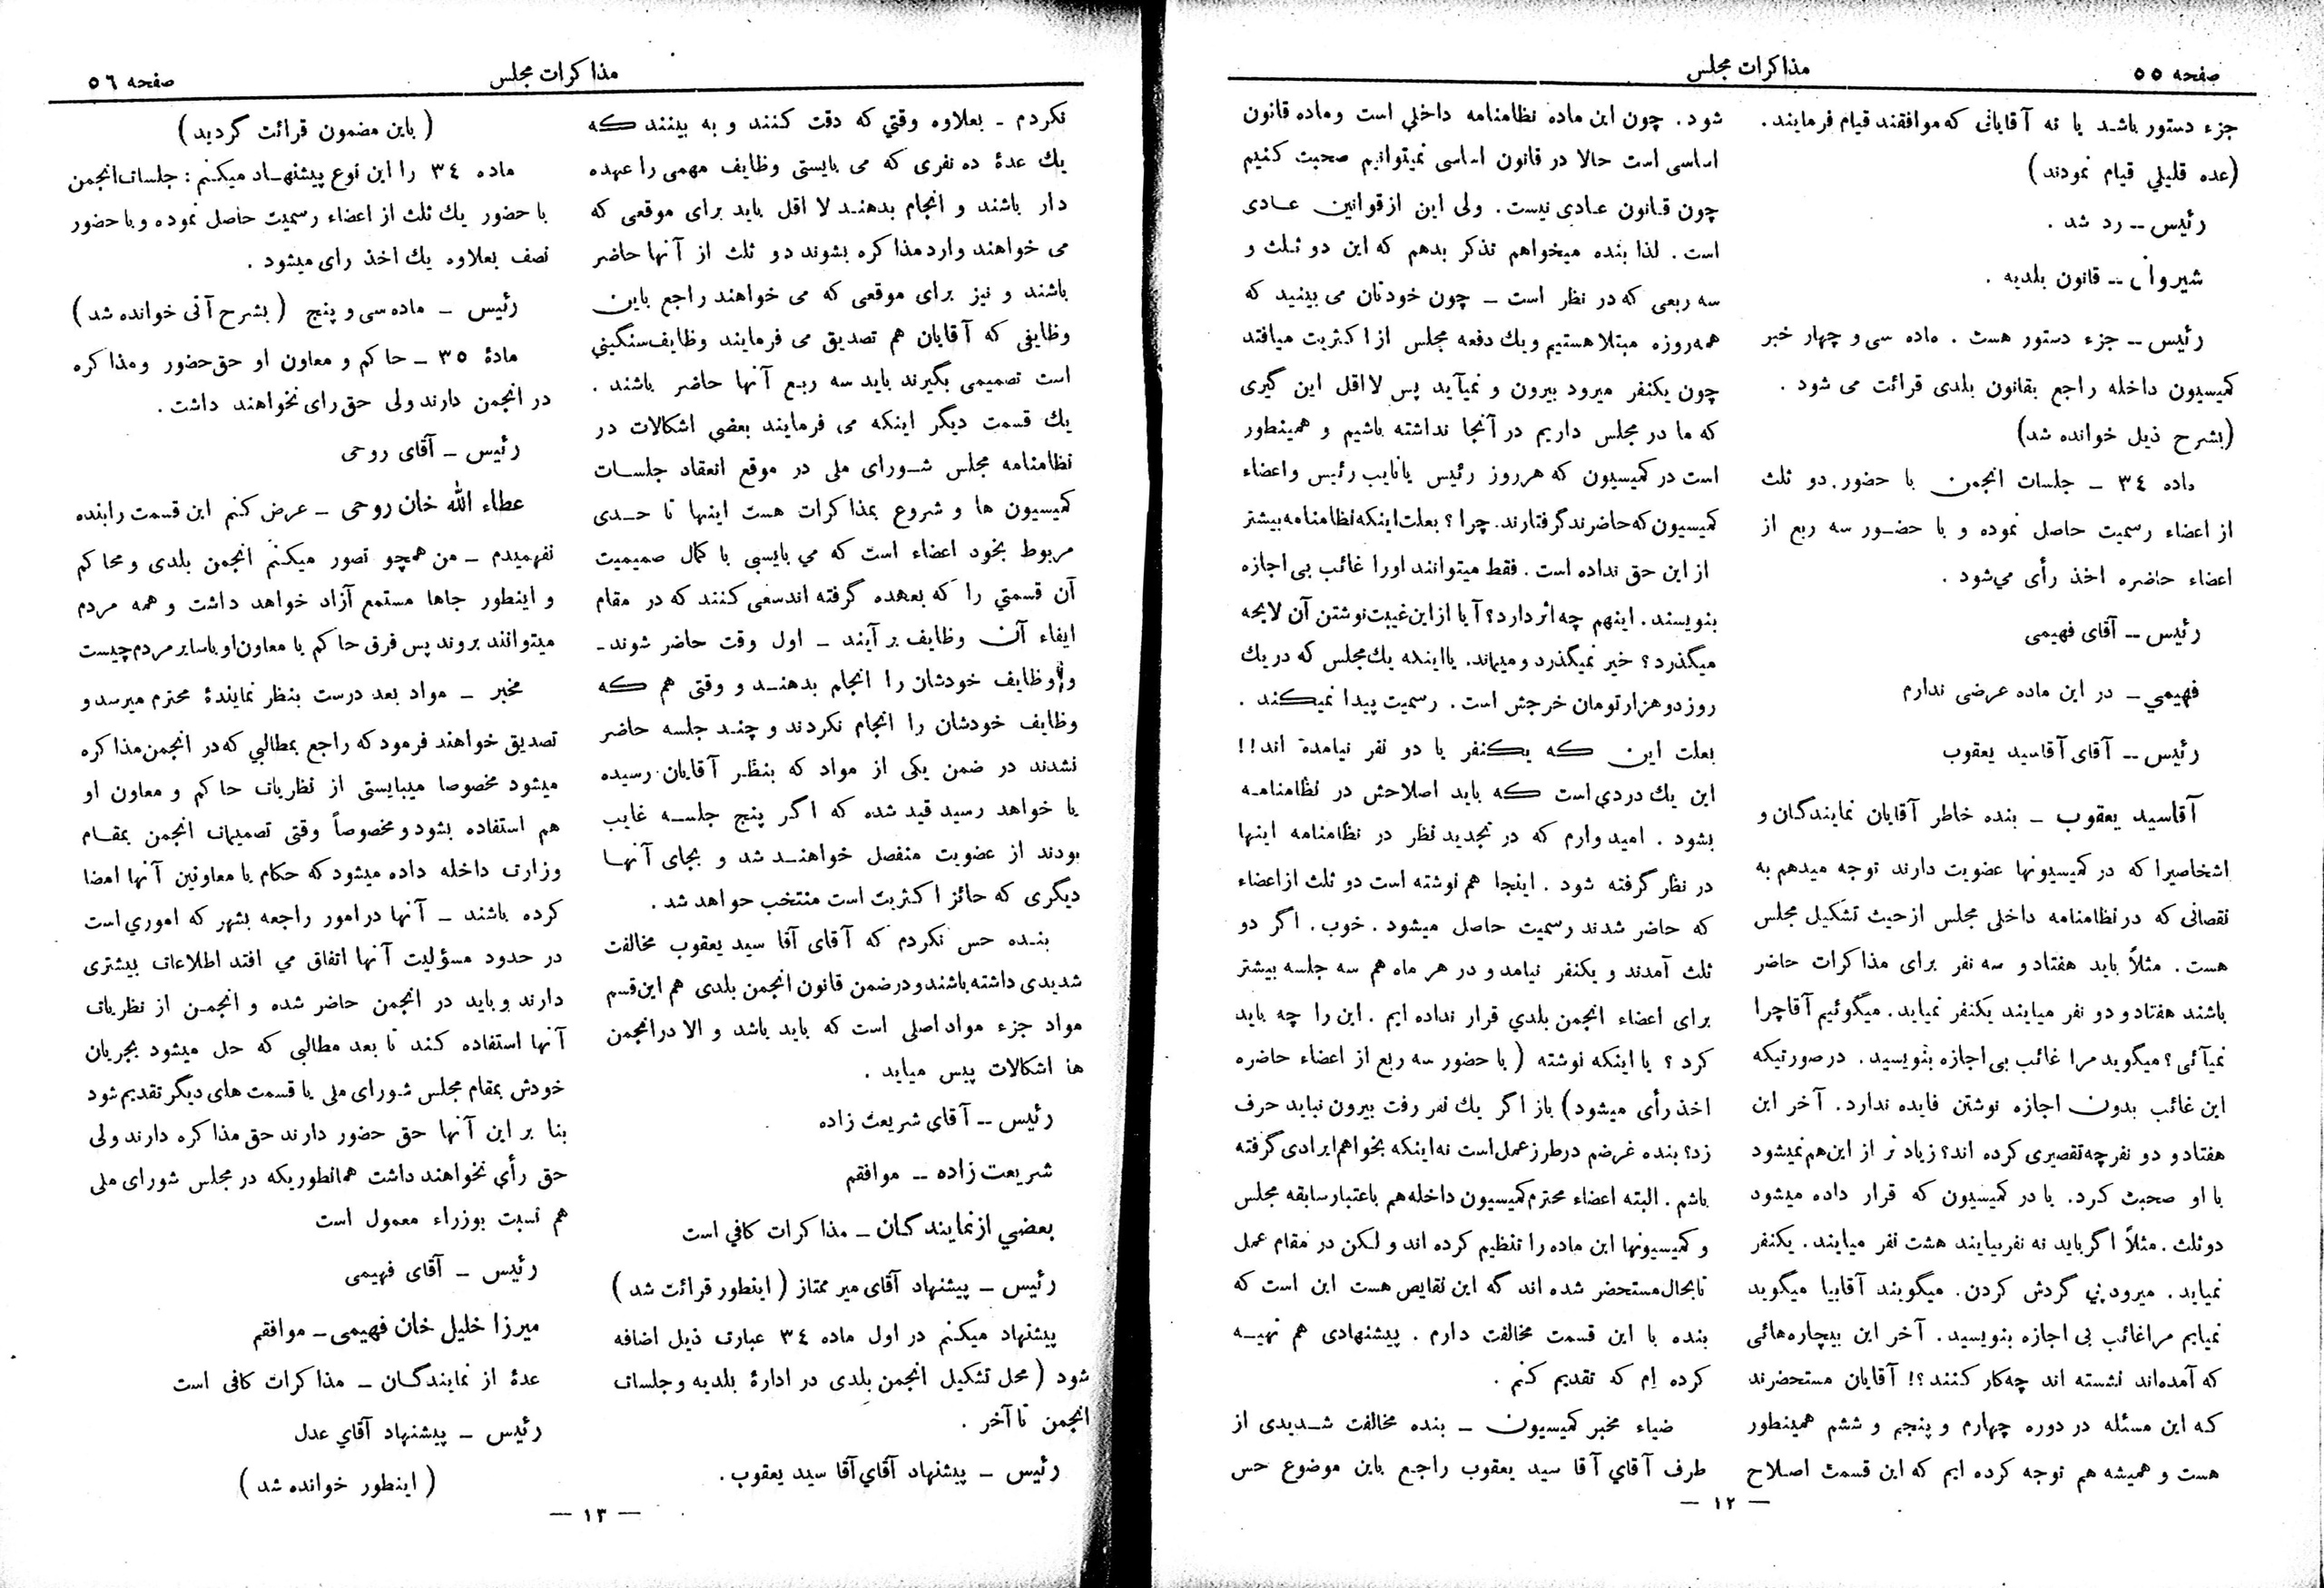 صفحه ۵۵
مذاکرات مجلس
جزء دستور باشد یا نه آقایانی که موافقند قیام فرمایند.
(عده قلیلی قیام نمودند)
رئیس -- رد شد .
شیروانی -- قانون بلدیه .
رئیس -- جزء دستور هست . ماده سی و چهار خبر
کمیسیون داخله راجع بقانون بلدی قرائت می شود .
(بشرح ذیل خوانده شد)
ماده ۳٤ - جلسات انجمن با حضور دو ثلث
از اعضاء رسمیت حاصل نموده و با حضور سه ربع از
اعضاء حاضره اخذ رأی میشود .
رئیس -- آقای فهیمی
فهیمی - در این ماده عرضی ندارم
رئیس -- آقای آقاسید یعقوب
آقاسید یعقوب - بنده خاطر آقایان نمایندگان و
اشخاصیرا که در کمیسیونها عضویت دارند توجه میدهم به
نقصانی که در نظامنامه داخلی مجلس از حیث تشکیل مجلس
هست . مثلاً باید هفتاد و سه نفر برای مذاکرات حاضر
باشند هفتاد و دو نفر میایند یکنفر نمیاید. میگوئیم آقا چرا
نمیآئی؟ میگوید مرا غائب بی اجازه بنویسید . در صورتیکه
این غائب بدون اجازه نوشتن فایده ندارد. آخر این
هفتاد و دو نفر چه تقصیری کرده اند؟ زیاد تر از این هم نمیشود
با او صحبت کرد. یا در کمیسیون که قرار داده میشود
دو ثلث . مثلاً اگر باید نه نفر بیایند هشت نفر میایند . یکنفر
نمیاید . میرود پی گردش کردن. میگویند آقا بیا میگوید
نمیایم مرا غائب بی اجازه بنویسید . آخر این بیچاره هائی
که آمده‌اند نشسته اند چه کار کنند؟! آقایان مستحضرند
که این مسئله در دوره چهارم و پنجم و ششم همینطور
هست و همیشه هم توجه کرده ایم که این قسمت اصلاح
شود. چون این ماده نظامنامه داخلی است و ماده قانون
اساسی است حالا در قانون اساسی نمیتوانیم صحبت کنیم
چون قانون عادی نیست. ولی این از قوانین عادی
است . لذا بنده میخواهم تذکر بدهم که این دو ثلث و
سه ربعی که در نظر است - چون خودتان می بینید که
همه روزه مبتلا هستیم و یك دفعه مجلس از اکثریت میافتد
چون یکنفر میرود بیرون و نمیآید پس لا اقل این گیری
که ما در مجلس داریم در آنجا نداشته باشیم و همینطور
است در کمیسیون که هر روز رئیس یا نایب رئیس و اعضاء
کمیسیون که حاضرند گرفتارند. چرا؟ بعلت اینکه نظامنامه بیشتر
از این حق نداده است . فقط میتوانند او را غائب بی اجازه
بنویسند . اینهم چه اثر دارد؟ آیا از این غیبت نوشتن آن لایحه
میگذرد؟ خیر نمیگذرد و میماند. یا اینکه یك مجلس که در یك
روز دو هزار تومان خرجش است . رسمیت پیدا نمیکند .
بعلت این که یکنفر یا دو نفر نیامده اند!!
این یك دردی است که باید اصلاحش در نظامنامه
بشود . امید وارم که در تجدید نظر در نظامنامه اینها
در نظر گرفته شود . اینجا هم نوشته است دو ثلث از اعضاء
که حاضر شدند رسمیت حاصل میشود . خوب . اگر دو
ثلث آمدند و یکنفر نیامد و در هر ماه هم سه جلسه بیشتر
برای اعضاء انجمن بلدی قرار نداده ایم . این را چه باید
کرد ؟ یا اینکه نوشته ( با حضور سه ربع از اعضاء حاضره
اخذ رأی میشود) باز اگر یك نفر رفت بیرون نباید حرف
زد؟ بنده غرضم در طرز عمل است نه اینکه بخواهم ایرادی گرفته
باشم . البته اعضاء محترم کمیسیون داخله هم باعتبار سابقه مجلس
و کمیسیونها این ماده را تنظیم کرده اند و لکن در مقام عمل
تا بحال مستحضر شده اند که این نقایص هست این است که
بنده با این قسمت مخالفت دارم . پیشنهادی هم تهیه
کرده ام که تقدیم کنم .
ضیاء مخبر کمیسیون - بنده مخالفت شدیدی از
طرف آقای آقا سید یعقوب راجع باین موضوع حس
- ۱۲ -
مذاکرات مجلس
صفحه ۵٦
نکردم - بعلاوه وقتی که دقت کنند و به بینند که
یك عدهٔ ده نفری که می بایستی وظایف مهمی را عهده
دار باشند و انجام بدهند لا اقل باید برای موقعی که
می خواهند وارد مذاکره بشوند دو ثلث از آنها حاضر
باشند و نیز برای موقعی که می خواهند راجع باین
وظایفی که آقایان هم تصدیق می فرمایند وظایف سنگینی
است تصمیمی بگیرند باید سه ربع آنها حاضر باشند .
یك قسمت دیگر اینکه می فرمایند بعضی اشکالات در
نظامنامه مجلس شورای ملی در موقع انعقاد جلسات
کمیسیون ها و شروع بمذاکرات هست اینها تا حدی
مربوط بخود اعضاء است که می بایسی با کمال صمیمیت
آن قسمتی را که بعهده گرفته اند سعی کنند که در مقام
ایفاء آن وظایف بر آیند - اول وقت حاضر شوند -
و وظایف خودشان را انجام بدهند و وقتی هم که
وظایف خودشان را انجام نکردند و چند جلسه حاضر
نشدند در ضمن یکی از مواد که بنظر آقایان رسیده
یا خواهد رسید قید شده که اگر پنج جلسه غایب
بودند از عضویت منفصل خواهند شد و بجای آنها
دیگری که حائز اکثریت است منتخب حواهد شد .
بنده حس نکردم که آقای آقا سید یعقوب مخالفت
شدیدی داشته باشند و در ضمن قانون انجمن بلدی هم این قسم
مواد جزء مواد اصلی است که باید باشد و الا در انجمن
ها اشکالات پیس میاید .
رئیس -- آقای شریعت زاده
شریعت زاده -- موافقم
بعضی از نمایندگان - مذاکرات کافی است
رئیس - پیشنهاد آقای میر ممتاز ( اینطور قرائت شد )
پیشنهاد میکنم در اول ماده ۳٤ عبارت ذیل اضافه
شود ( محل تشکیل انجمن بلدی در ادارهٔ بلدیه و جلسات
انجمن تا آخر .
رئیس - پیشنهاد آقای آقا سید یعقوب.
( باین مضمون قرائت گردید )
ماده ۳٤ را این نوع پیشنهاد میکنم : جلسات انجمن
با حضور یك ثلث از اعضاء رسمیت حاصل نموده و با حضور
نصف بعلاوه یك اخذ رای میشود .
رئیس - ماده سی و پنج ( بشرح آتی خوانده شد )
مادهٔ ۳۵ - حاکم و معاون او حق حضور و مذاکره
در انجمن دارند ولی حق رای نخواهند داشت .
رئیس - آقای روحی
عطاء الله خان روحی - عرض کنم این قسمت را بنده
نفهمیدم - من همچو تصور میکنم انجمن بلدی و محاکم
و اینطور جاها مستمع آزاد خواهد داشت و همه مردم
میتوانند بروند پس فرق حاکم یا معاون او با سایر مردم چیست
مخبر - مواد بعد درست بنظر نمایندهٔ محترم میرسد و
تصدیق خواهند فرمود که راجع بمطالبی که در انجمن مذاکره
میشود مخصوصا میبایستی از نظریات حاکم و معاون او
هم استفاده بشود و مخصوصاً وقتی تصمیمات انجمن بمقام
وزارت داخله داده میشود که حکام یا معاونین آنها امضا
کرده باشند - آنها در امور راجعه بشهر که اموری است
در حدود مسؤلیت آنها اتفاق می افتد اطلاعات بیشتری
دارند و باید در انجمن حاضر شده و انجمن از نظریات
آنها استفاده کند تا بعد مطالبی که حل میشود بجریان
خودش بمقام مجلس شورای ملی یا قسمت های دیگر تقدیم شود
بنا بر این آنها حق حضور دارند حق مذاکره دارند ولی
حق رأی نخواهند داشت همانطوریکه در مجلس شورای ملی
هم نسبت بوزراء معمول است
رئیس - آقای فهیمی
میرزا خلیل خان فهیمی - موافقم
عدهٔ از نمایندگان - مذاکرات کافی است
رئیس - پیشنهاد آقای عدل
( اینطور خوانده شد )
- ۱۳ -